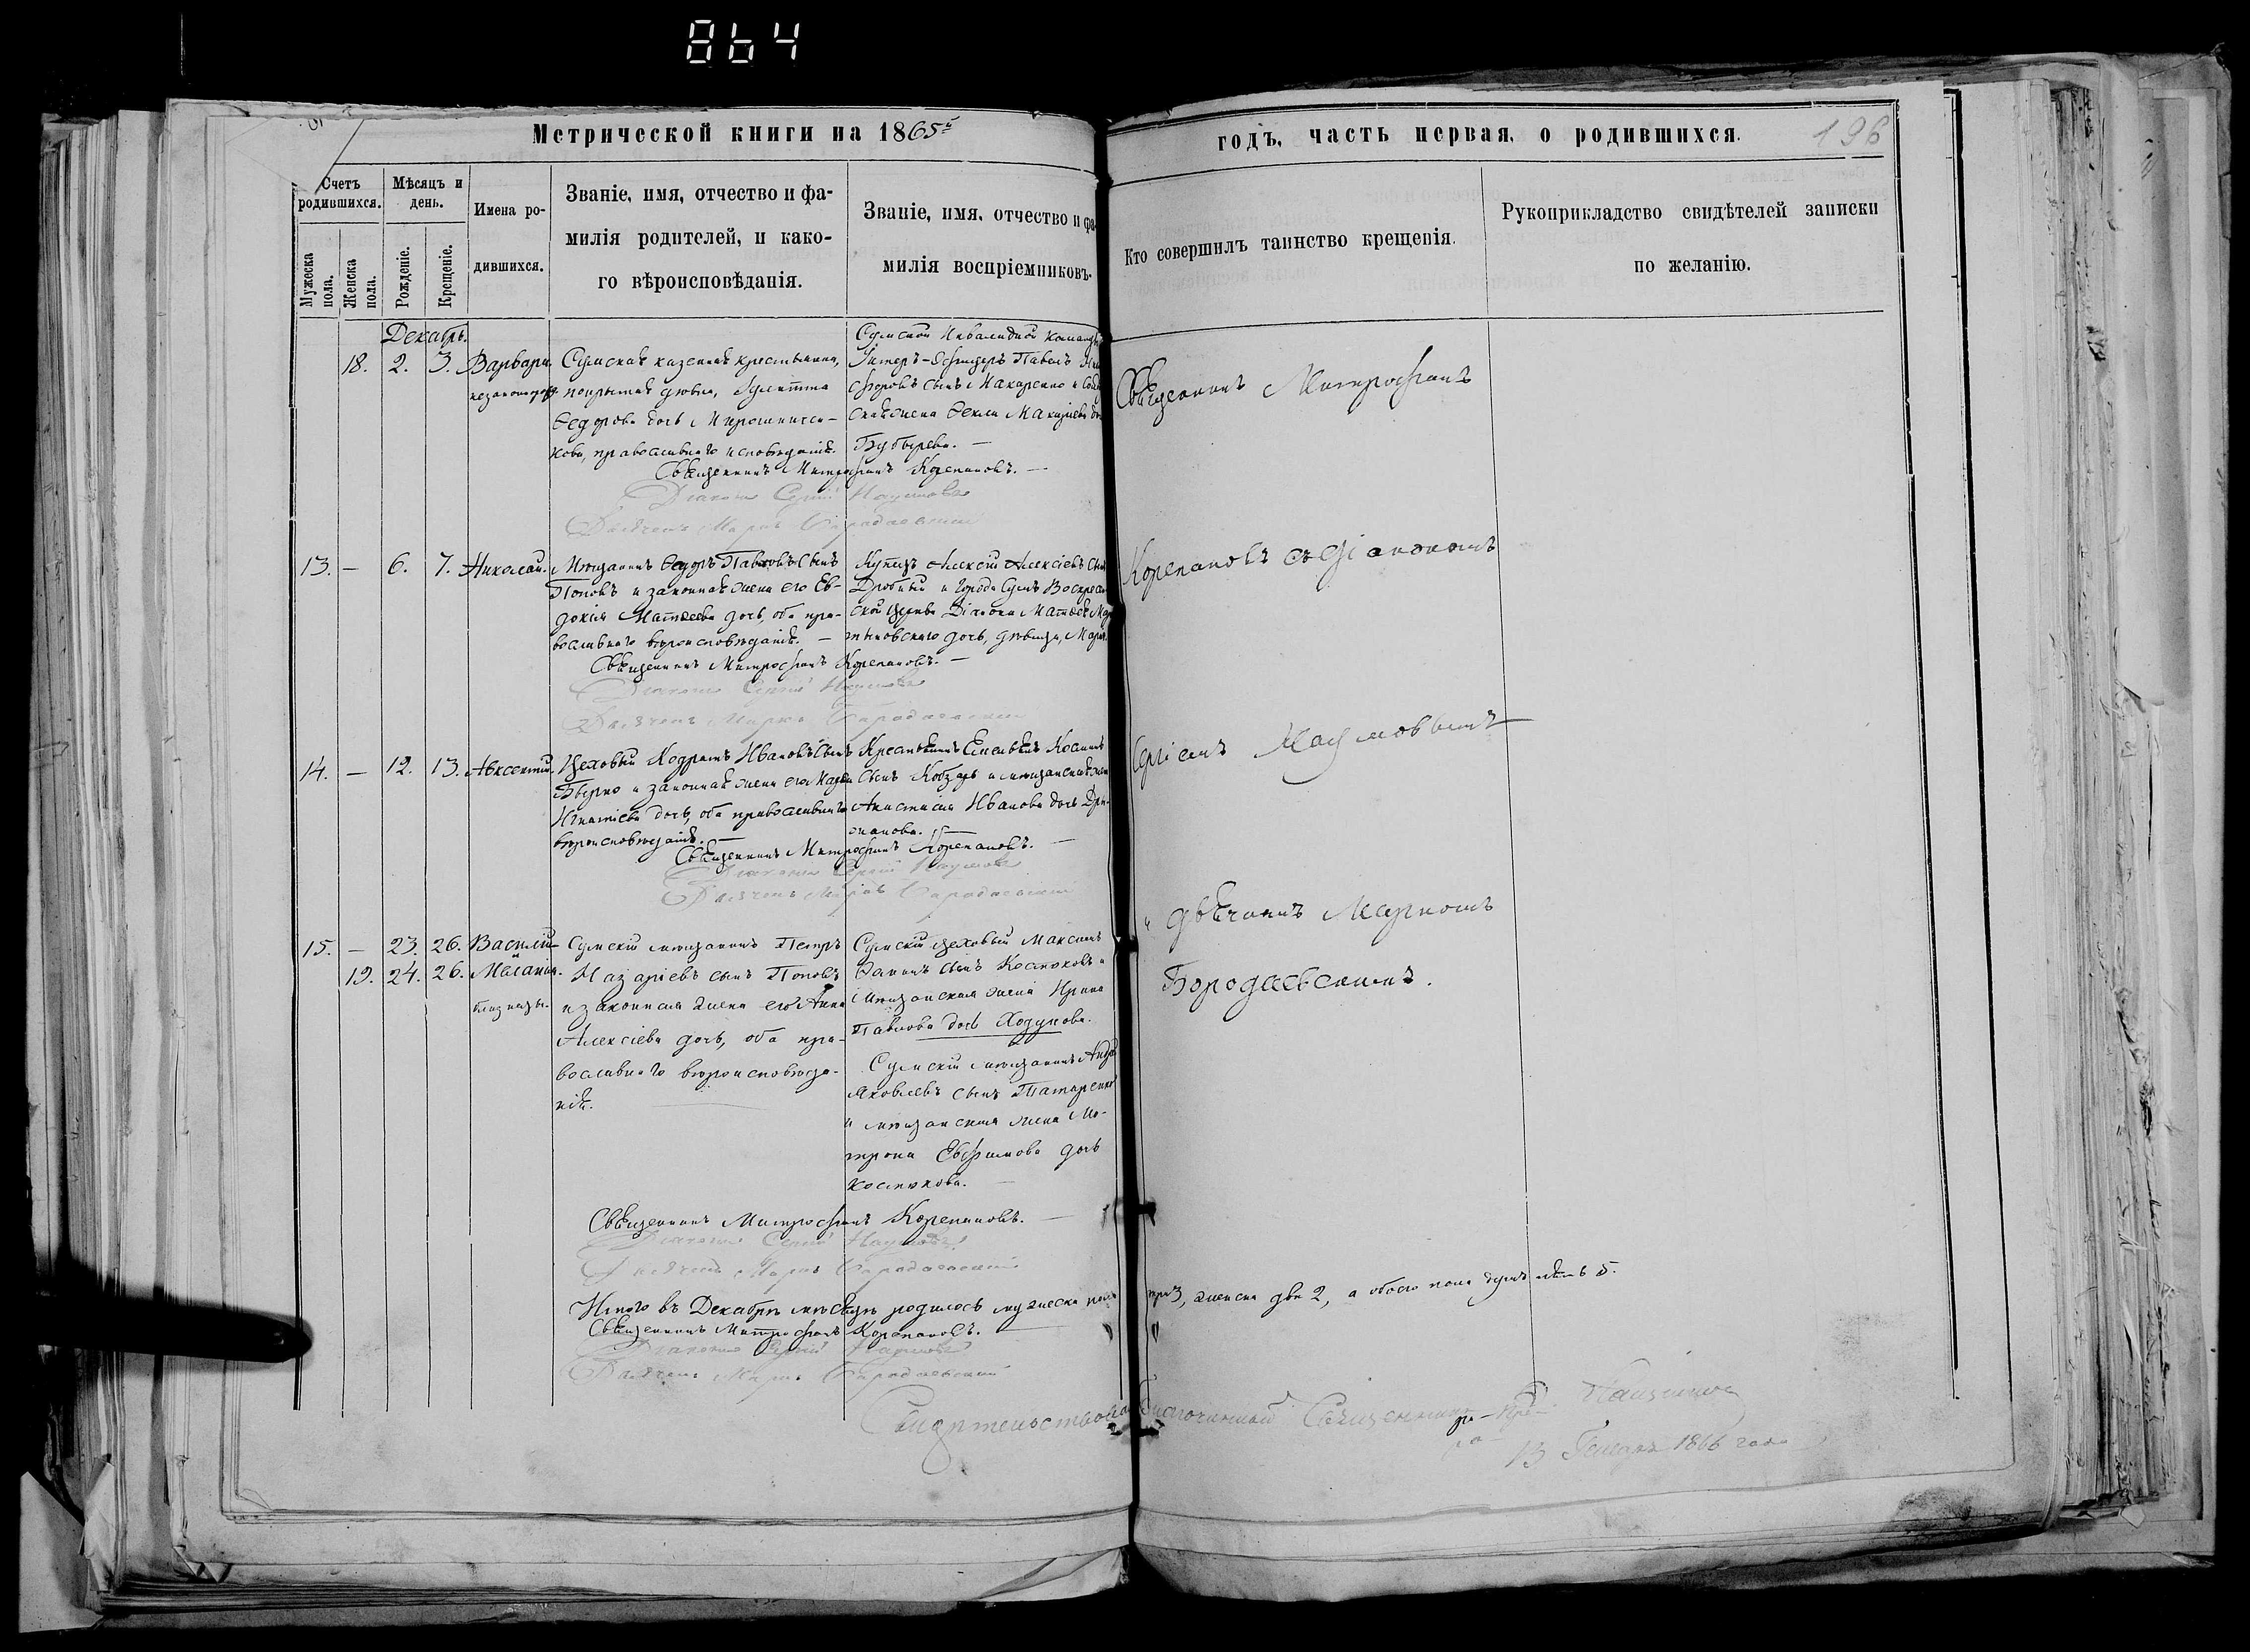 864
Метрической книги на 1865й
годъ, часть первая, о родившихся.
196
Счетъ родившихся.
Мѣсяцъ и день.
Имена родившихся.
Званіе, имя, отчество и фамилія родителей, и какого вѣроисповѣданія.
Званіе, имя, отчество и фамилія воспріемниковъ.
Кто совершилъ таинство крещенія.
Рукоприкладство свидѣтелей записки по желанію.
Мужеска пола.
Женска пола.
Рожденіе.
Крещеніе.
Декабрь.
18. 2. 3. Варвара
Сумская казенная крестьянка,
покрытая
Ѳедорова дочь Мирошничен-
кова, православнаго исповѣданія.
Сумской Инвалидной команды
Унтеръ-Офицеръ Павелъ Ники-
форовъ сынъ Макаренко и
жена Ѳекла
Бубырева.
Священникъ Митрофанъ Корепановъ.
Діаконъ Сергій Наумовъ
Дьячекъ Марко Бородаевскій
13. — 6. 7. Николай.
Мѣщанинъ Ѳедоръ Павловъ сынъ
Поповъ и законная жена его Ев-
докія Матѳеева дочь, оба пра-
вославнаго вѣроисповѣданія. —
Купецъ Алексій Алексіевъ сынъ
и города Сумъ Воскресен-
ской церкви Діакона Матѳея
дочь, дѣвица, Марія
Священникъ Митрофанъ Корепановъ. —
Діаконъ Сергій Наумовъ
Дьячекъ Марко Бородаевскій
14. — 12. 13. Авксентій.
Цеховый Кодратъ Ивановъ сынъ
и законная жена его Марѳа
Игнатіева дочь, оба православнаго
вѣроисповѣданія. —
Крестьянинъ Емельянъ Косминъ
сынъ Кобзарь и мѣщанская жена
Анастасія Иванова дочь
Священникъ Митрофанъ Корепановъ. —
Діаконъ Сергій Наумовъ
Дьячекъ Марко Бородаевскій
15. — 23. 26. Василій
19. 24. 26. Меланія.
близнецы.
Сумскій мѣщанинъ Петръ
Назаріевъ сынъ Поповъ
и законная жена его Анна
Алексіева дочь, оба пра-
вославнаго вѣроисповѣда-
нія.
Сумскій цеховый Максимъ
сынъ Костюковъ и
мѣщанская жена Ирина
Павлова дочь Ходунова.
Сумскій мѣщанинъ
Яковлевъ сынъ Татаренко
и мѣщанская жена Ма-
трона Евфимова дочь
Костюкова.
Священникъ Митрофанъ Корепановъ. —
Діаконъ Сергій Наумовъ
Дьячекъ Марко Бородаевскій
Итого въ Декабрѣ мѣсяцѣ родилось мужеска пола три 3, женска два 2, а обоего пола душъ пять 5.
Священникъ Митрофанъ Корепановъ. —
Діаконъ Сергій Наумовъ
Дьячекъ Марко Бородаевскій
Священникъ Митрофанъ
Корепановъ съ Діакономъ
Сергіемъ Наумовымъ
и дьячкомъ Маркомъ
Бородаевскимъ.
Свидѣтельствовалъ Благочинный Священникъ
13 Генваря 1866 года